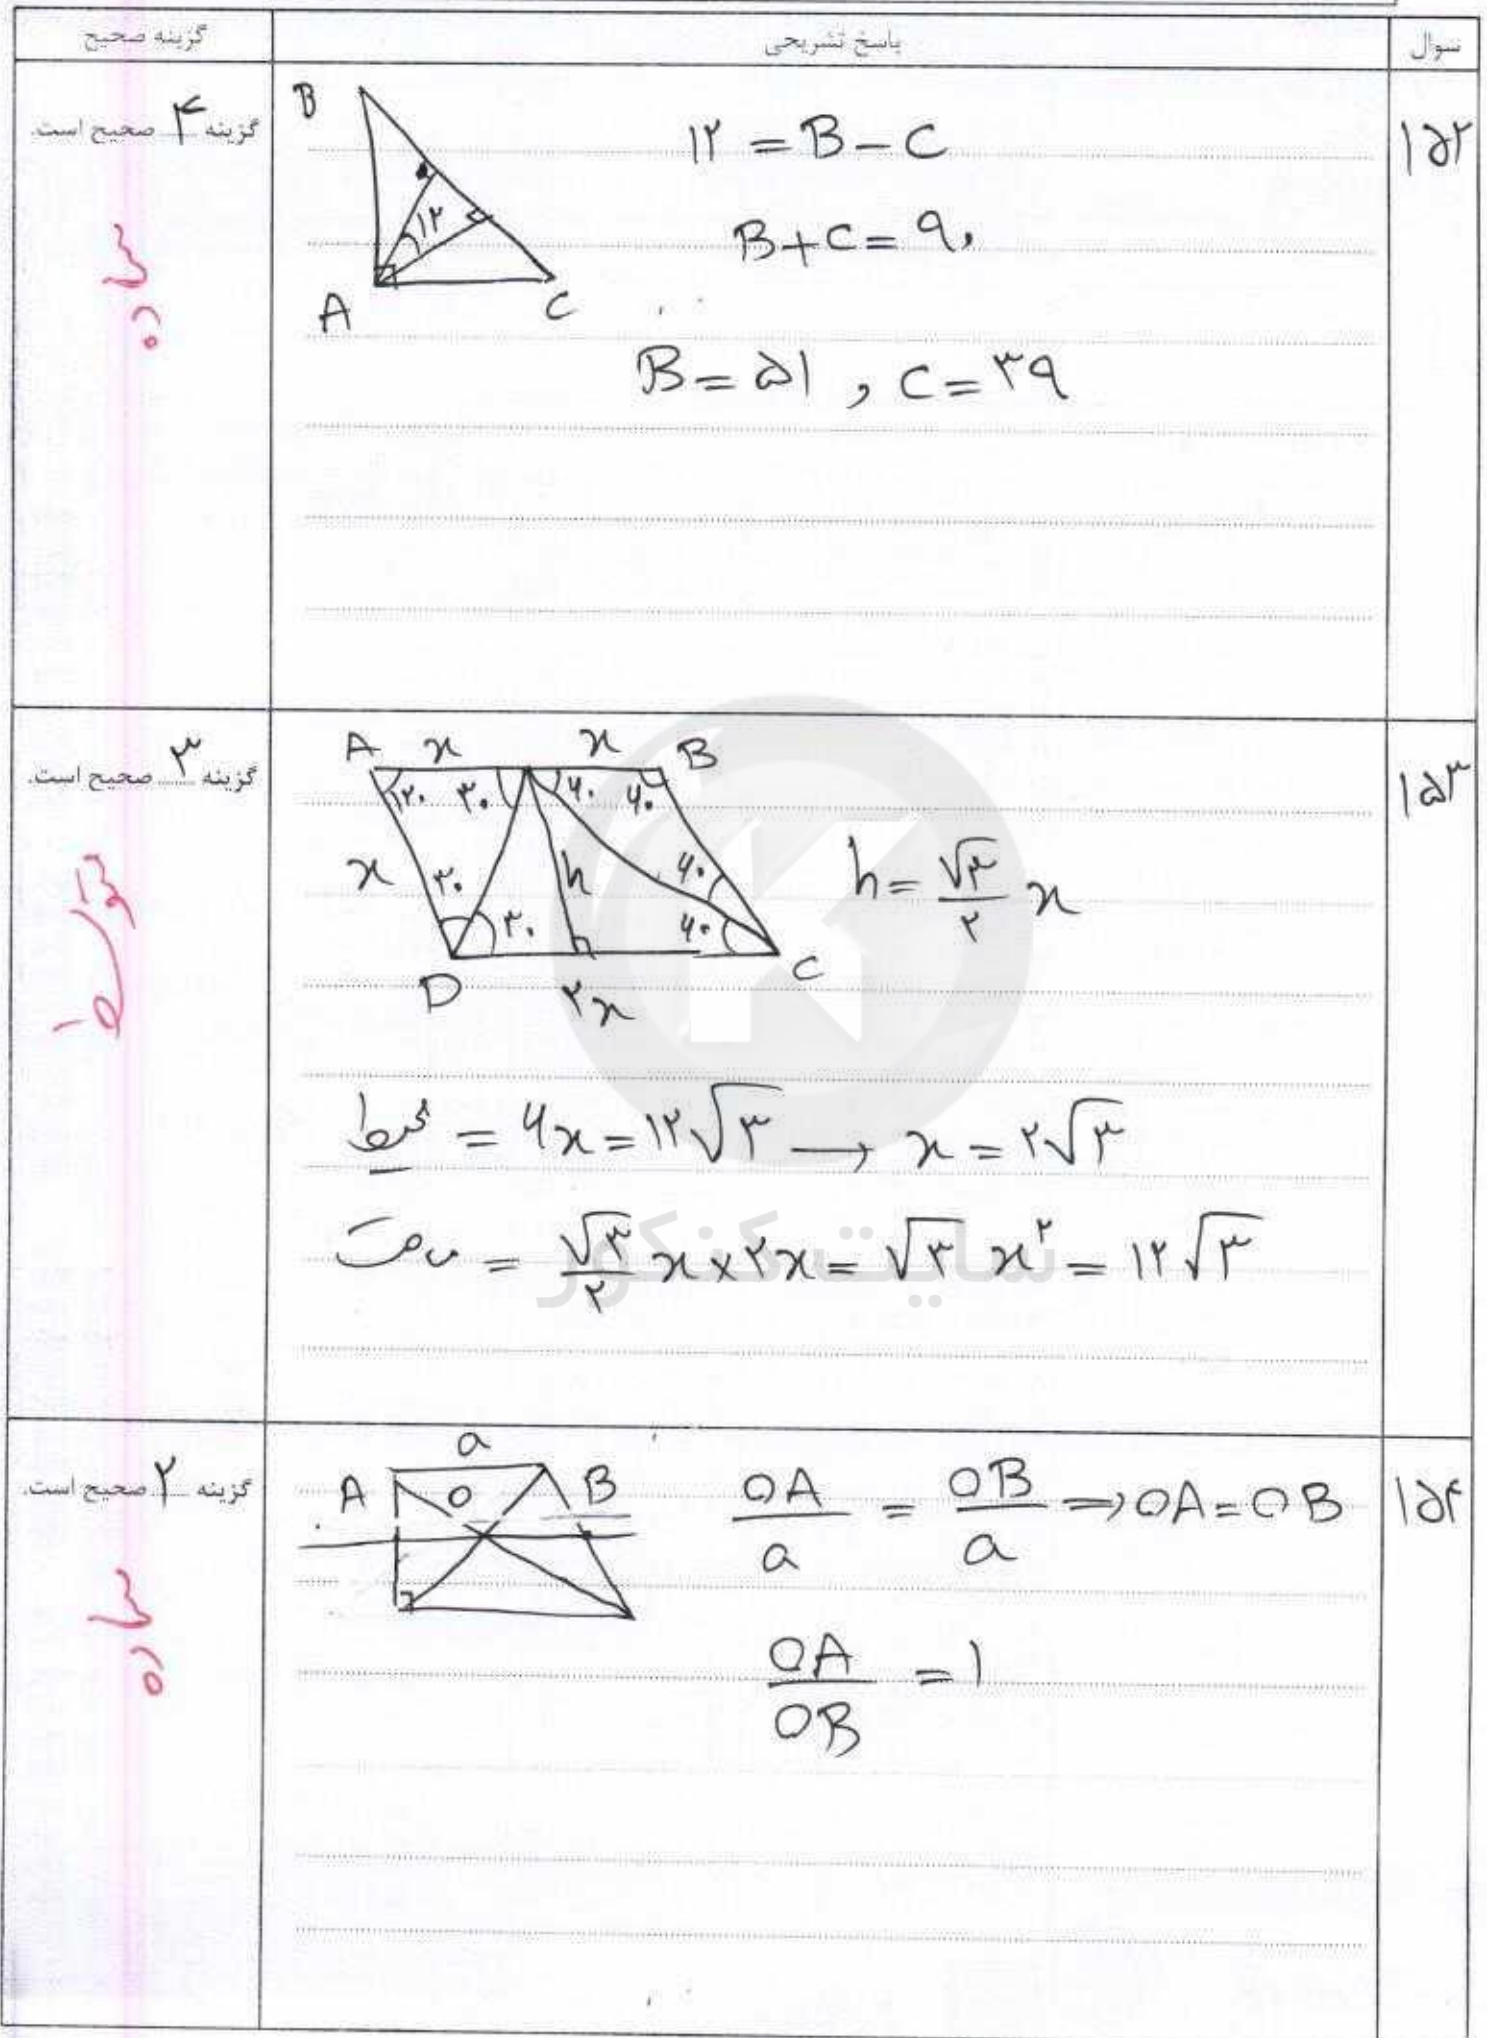 سوال
پاسخ تشریحی
گزینه صحیح
۱۵۲
B
A
C
۱۲
۱۲ = B - C
B + C = ۹۰
B = ۵۱ , C = ۳۹
گزینه ۴ صحیح است.
ساده
۱۵۳
A x x B
۳۰ ۶۰ ۶۰
x ۳۰ h ۶۰
۳۰ ۶۰
D ۲x C
h = √۳/۲ x
محیط = ۶x = ۱۲√۳ → x = ۲√۳
مساحت = √۳/۲ x × ۲x = √۳ x^۲ = ۱۲√۳
گزینه ۳ صحیح است.
متوسط
سایت کنکور
۱۵۴
a
A O B
OA/a = OB/a ⇒ OA = OB
OA/OB = ۱
گزینه ۲ صحیح است.
ساده